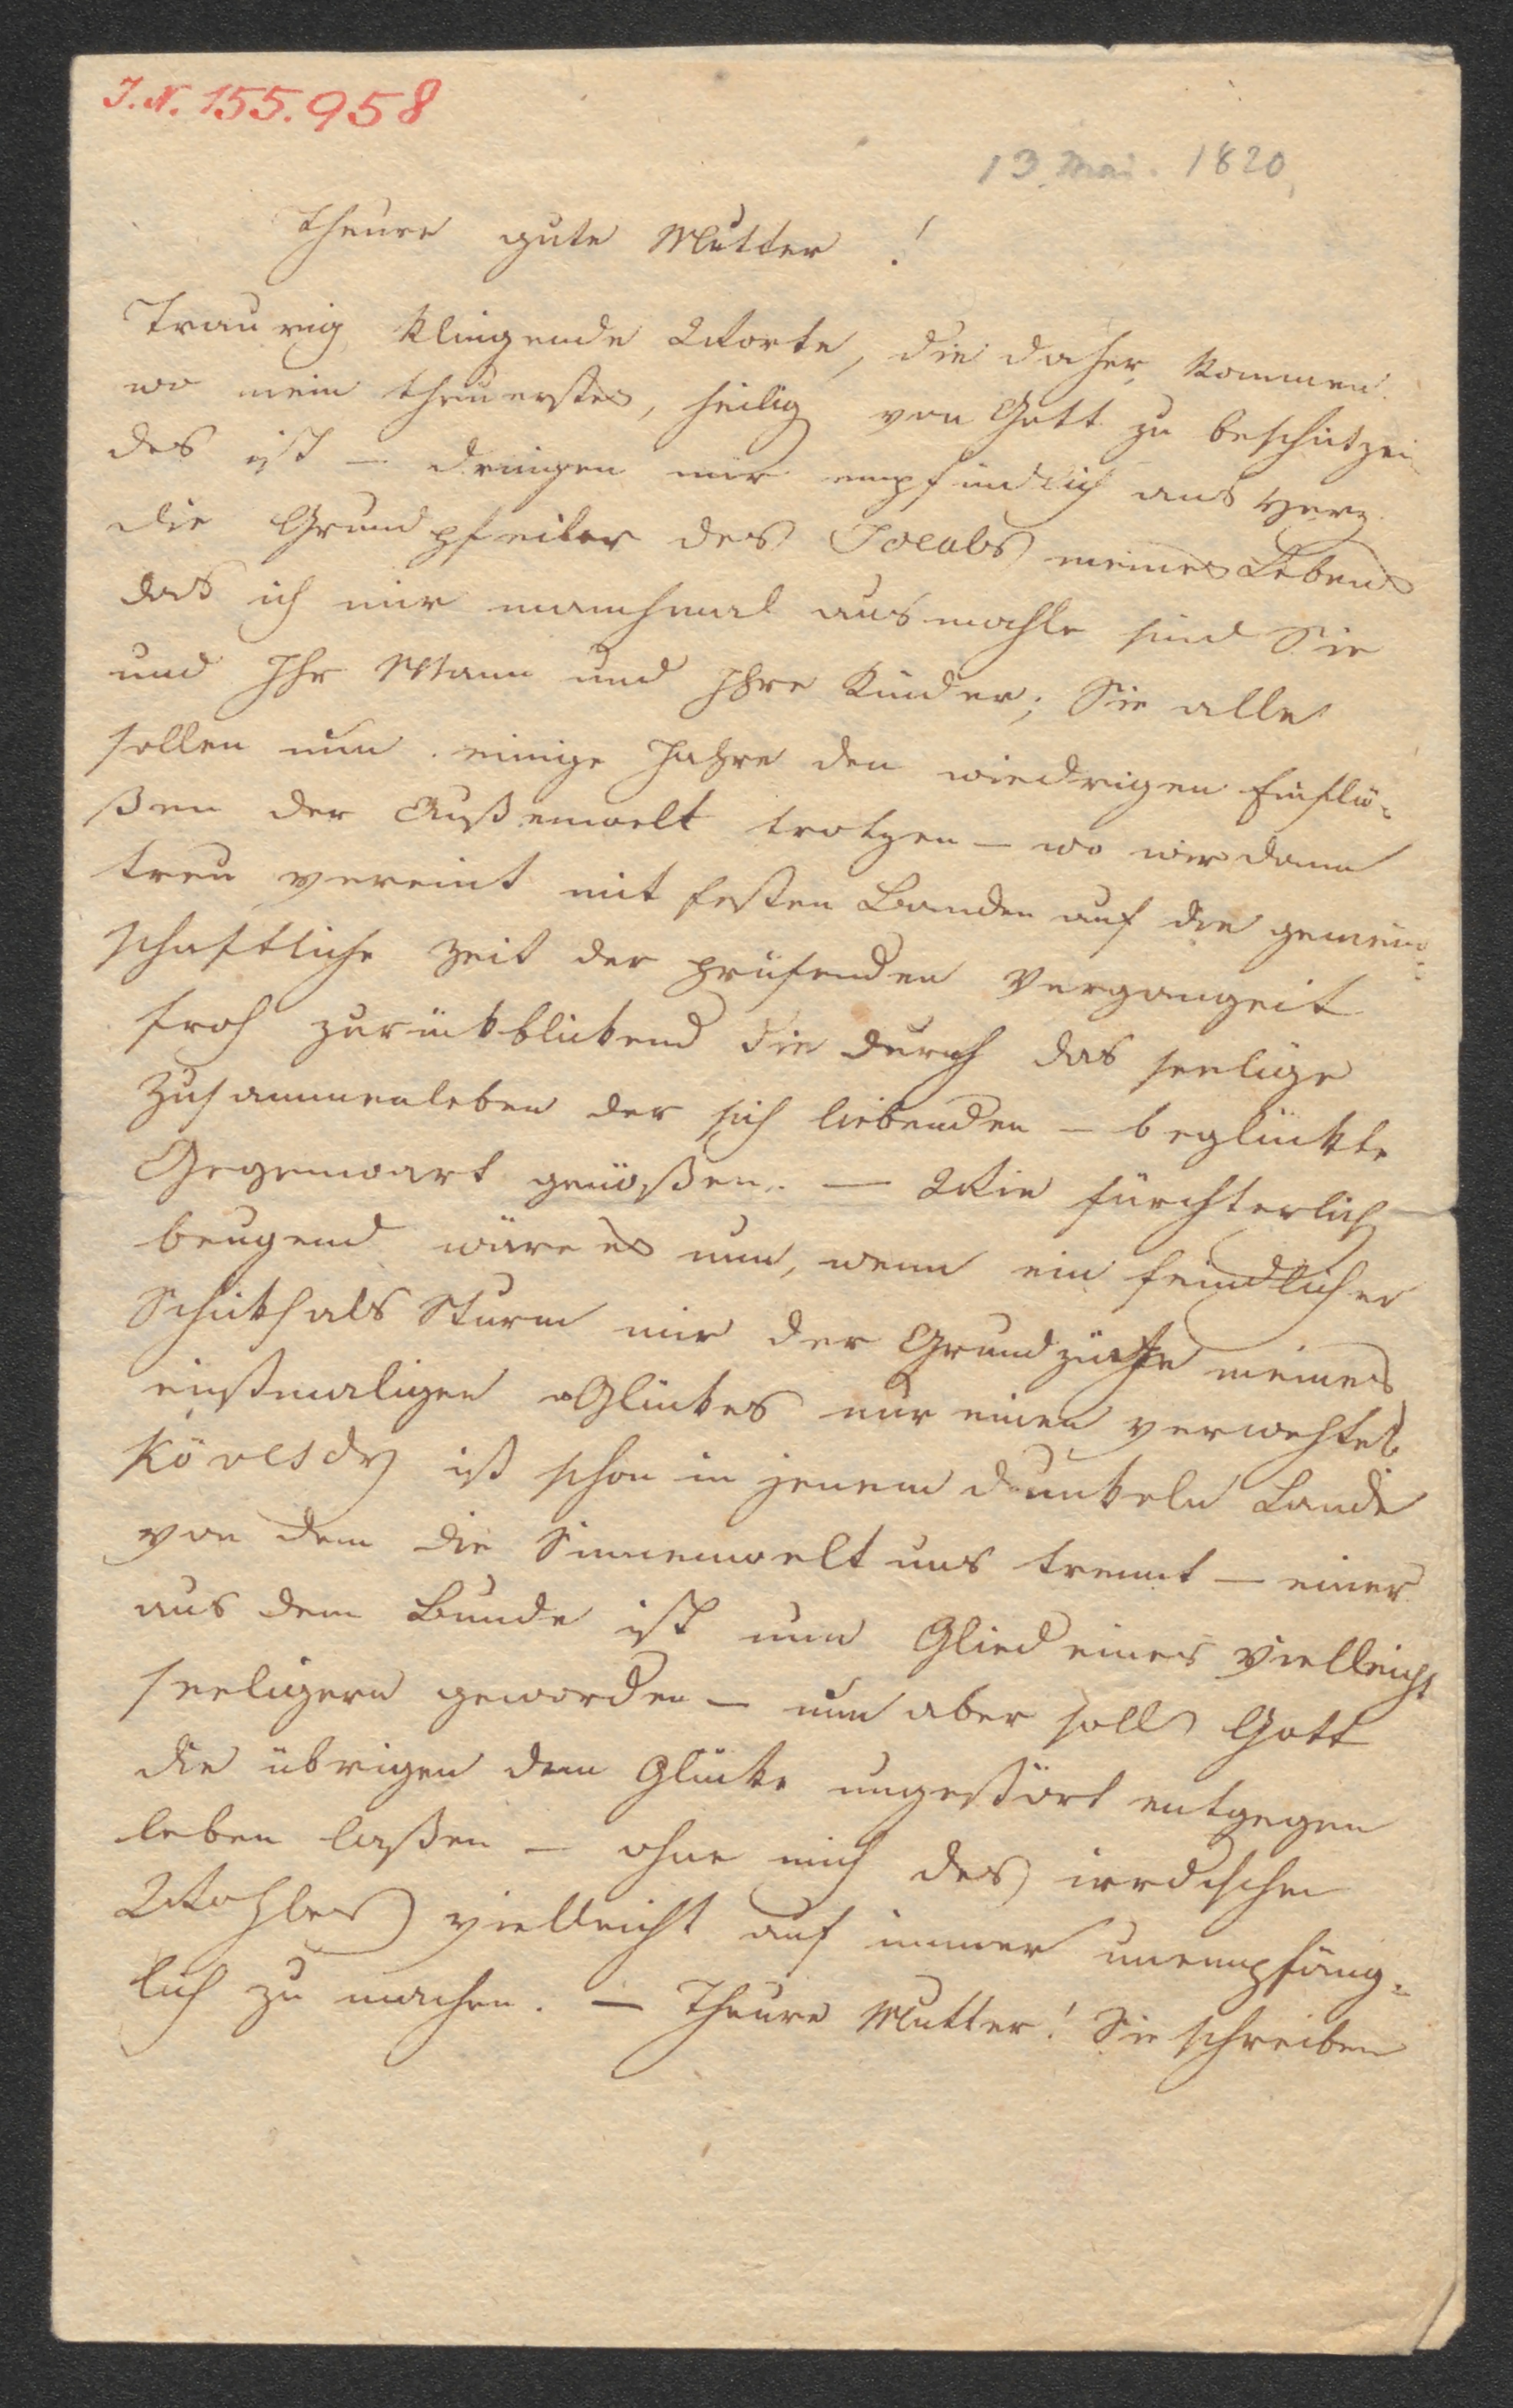 J.N. 155.958
13. Mai. 1820
Theure gute Mutter!
Traurig klingende Worte, die daher kommen
wo mein theuerstes, heilig von Gott zu beschützen
des ist – dringen mir empfindlich ans Herz
die Grundpfeiler des Ideals meines Lebens
das ich mir manchmal ausmahle sind Sie
und Ihr Mann und Ihre Kinder; Sie alle
sollen nun einige Jahre den wiedrigen Einflü-
ßen der Außenwelt trotzen – wo wir dann
treu vereint mit festen Banden auf die gemein-
schaftliche Zeit der prüfenden Vergangeit
froh zurückblickend die durch das seelige
Zusammenleben der sich liebenden – beglückte
Gegenwart genößen. – Wie fürchterlich
beugend wäre es nun, wenn ein feindlicher
Schicksals Sturm mir der Grundzüge meines
einstmaligen Glückes nur einen verwehte.
Kövesdy ist schon in jenem dunkeln Lande
von dem die Sinnenwelt uns trennt – einer
aus dem Bunde ist nun Glied eines vielleicht
seeligern geworden – nun aber soll Gott
die übrigen dem Glücke ungestört entgegen
leben laßen – ohne mich des irrdischen
Wohles vielleicht auf immer unempfäng-
lich zu machen. – Theure Mutter! Sie schreiben